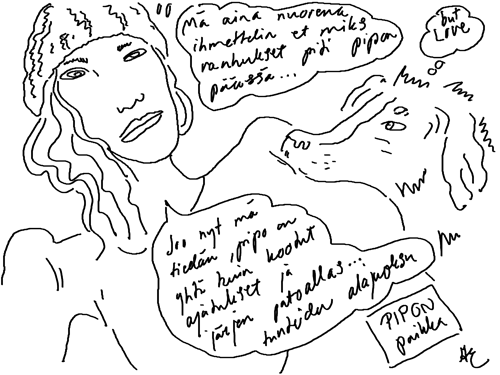 Mä aina nuorena
ihmettelin et miks
vanhukset piti pipon
päässä...
but
LOVE
Joo nyt mä
tiedän, pipo on
yhtä kuin kootut
ajatukset ja
järjen patoallas...
tunteiden alajuoksu
PIPON
paikka
AE